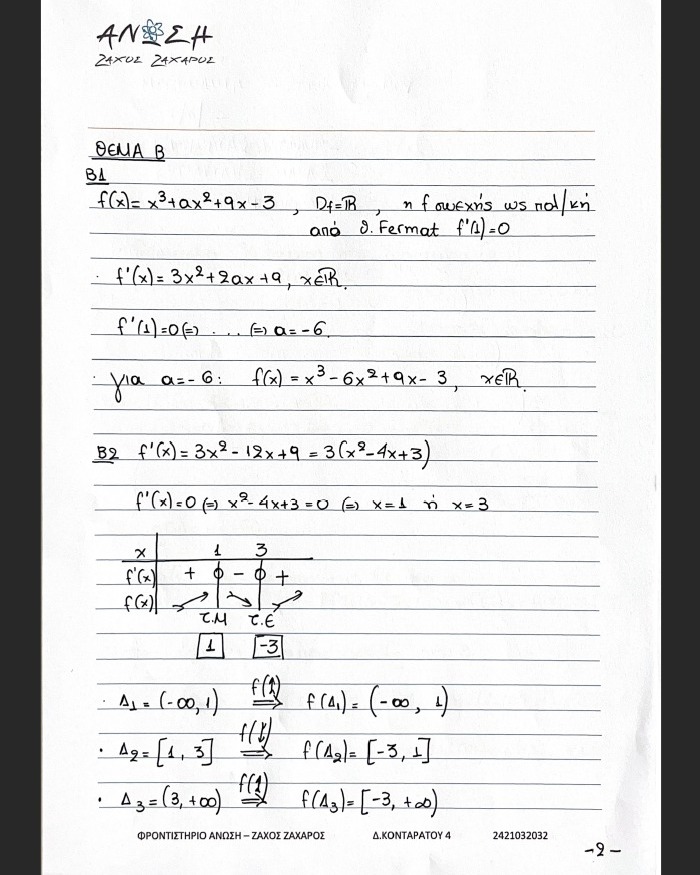 ΑΝΩΣΗ
ΖΑΧΟΣ ΖΑΧΑΡΟΣ
ΘΕΜΑ Β
Β1
f(x) = x³+αx²+9x-3 , Df=ℝ , η f συνεχής ως πολ/κή
από θ. Fermat f'(1)=0
· f'(x) = 3x²+2αx+9, x∈ℝ.
f'(1)=0 (=) ... (=) α=-6.
· για α=-6: f(x) = x³-6x²+9x-3, x∈ℝ.
Β2 f'(x) = 3x²-12x+9 = 3(x²-4x+3)
f'(x)=0 (=) x²-4x+3=0 (=) x=1 ή x=3
x 1 3
f'(x) + 0 - 0 +
f(x) ↗ ↘ ↗
τ.Μ τ.Ε
1 -3
· Δ1 = (-∞, 1) f(↑) ⇒ f(Δ1) = (-∞, 1)
· Δ2 = [1, 3] f(↓) ⇒ f(Δ2) = [-3, 1]
· Δ3 = (3, +∞) f(↑) ⇒ f(Δ3) = [-3, +∞)
ΦΡΟΝΤΙΣΤΗΡΙΟ ΑΝΩΣΗ – ΖΑΧΟΣ ΖΑΧΑΡΟΣ Δ.ΚΟΝΤΑΡΑΤΟΥ 4 2421032032
-2-